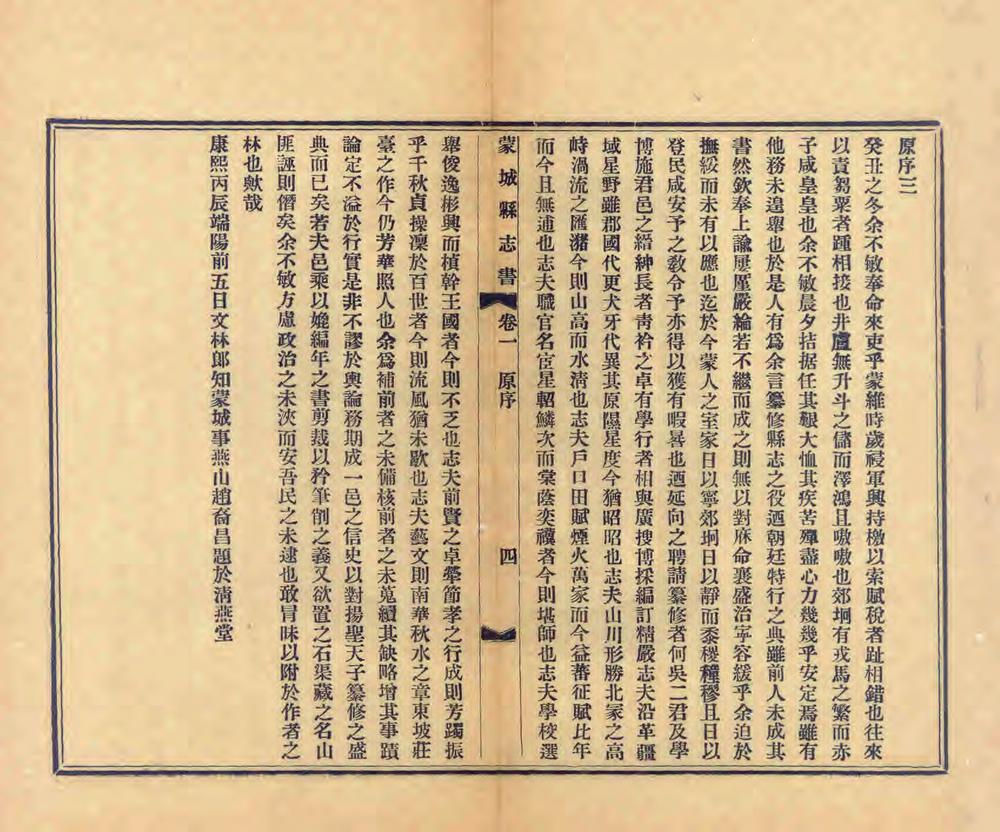 原序三
癸丑之冬余不敏奉命來吏乎蒙維時歲祲軍興持檄以索賦稅者趾相錯也往來
以責芻粟者踵相接也井廬無升斗之儲而澤鴻且嗷嗷也郊坰有戎馬之繁而赤
子咸皇皇也余不敏晨夕拮据任其艱大恤其疾苦殫盡心力幾幾乎安定焉雖有
他務未遑舉也於是人有為余言纂修縣志之役迺朝廷特行之典雖前人未成其
書然欽奉上諭屢厪嚴綸若不繼而成之則無以對庥命襄盛治寧容緩乎余迫於
撫綏而未有以應也迄於今蒙人之室家日以寧郊坰日以靜而黍稷穜穋且日以
登民咸安予之敎令予亦得以獲有暇晷也迺延向之聘請纂修者何吳二君及學
博施君邑之縉紳長者靑衿之卓有學行者相與廣搜博採編訂精嚴志夫沿革疆
域星野雖郡國代更犬牙代異其原隰星度今猶昭昭也志夫山川形勝北冢之高
峙渦流之匯瀦今則山高而水淸也志夫戶口田賦煙火萬家而今益蕃征賦比年
而今且無逋也志夫職官名宦星軺鱗次而棠蔭奕禩者今則堪師也志夫學校選
蒙城縣志書 卷一 原序 四
舉俊逸彬興而楨幹王國者今則不乏也志夫前賢之卓犖節孝之行成則芳躅振
乎千秋貞操凜於百世者今則流風猶未歇也志夫藝文則南華秋水之章東坡莊
臺之作今仍芳華照人也余爲補前者之未備核前者之未蒐續其缺略增其事蹟
論定不溢於行實是非不謬於輿論務期成一邑之信史以對揚聖天子纂修之盛
典而已矣若夫邑乘以媲編年之書剪裁以矜筆削之義又欲置之石渠藏之名山
匪誣則僭矣余不敏方慮政治之未浹而安吾民之未逮也敢冒昧以附於作者之
林也歟哉
康熙丙辰端陽前五日文林郎知蒙城事燕山趙裔昌題於淸燕堂